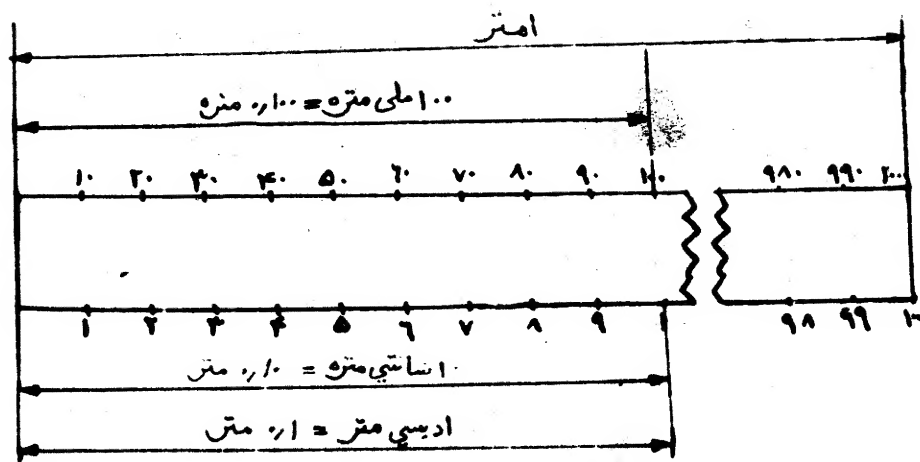 ۱متر
۱۰۰ملی متره = ۰٫۱۰۰ متره
۱۰ ۲۰ ۳۰ ۴۰ ۵۰ ۶۰ ۷۰ ۸۰ ۹۰ ۱۰۰ ۹۸۰ ۹۹۰ ۱۰۰۰
۱ ۲ ۳ ۴ ۵ ۶ ۷ ۸ ۹ ۱۰ ۹۸ ۹۹ ۱۰۰
۱۰سانتي متره = ۰٫۱۰ متر
۱دیسي متر = ۰٫۱ متر